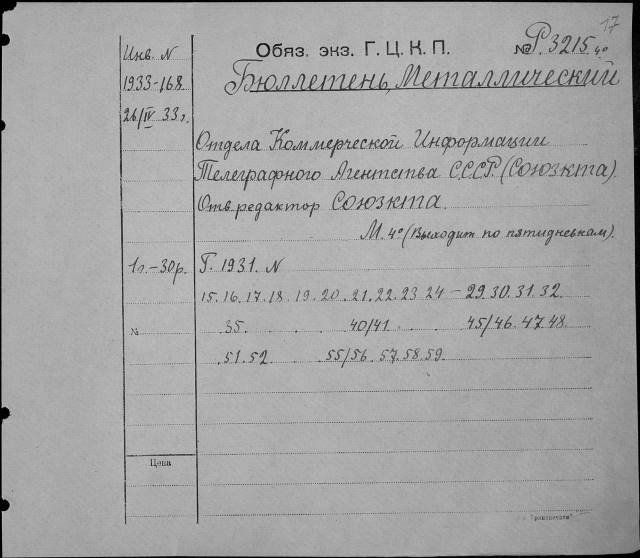 17
Инв. N Обяз. экз. Г. Ц. К. П. № Р. 3215 4º
1933-168 Бюллетень, Металлический
26/IV 33 г.
Отдела Коммерческой Информации
Телеграфного Агентства С.С.С.Р. (Союзкта).
Отв. редактор СОЮЗКТА.
М. 4º (Выходит по пятидневкам).
1 г. – 30 р. Г. 1931. N
15. 16. 17. 18. 19. 20. 21. 22. 23 24 – 29. 30. 31. 32.
№ 35. . . . 40/41. . . 45/46. 47. 48.
51. 52. . . . 55/56. 57. 58. 59.
Цена